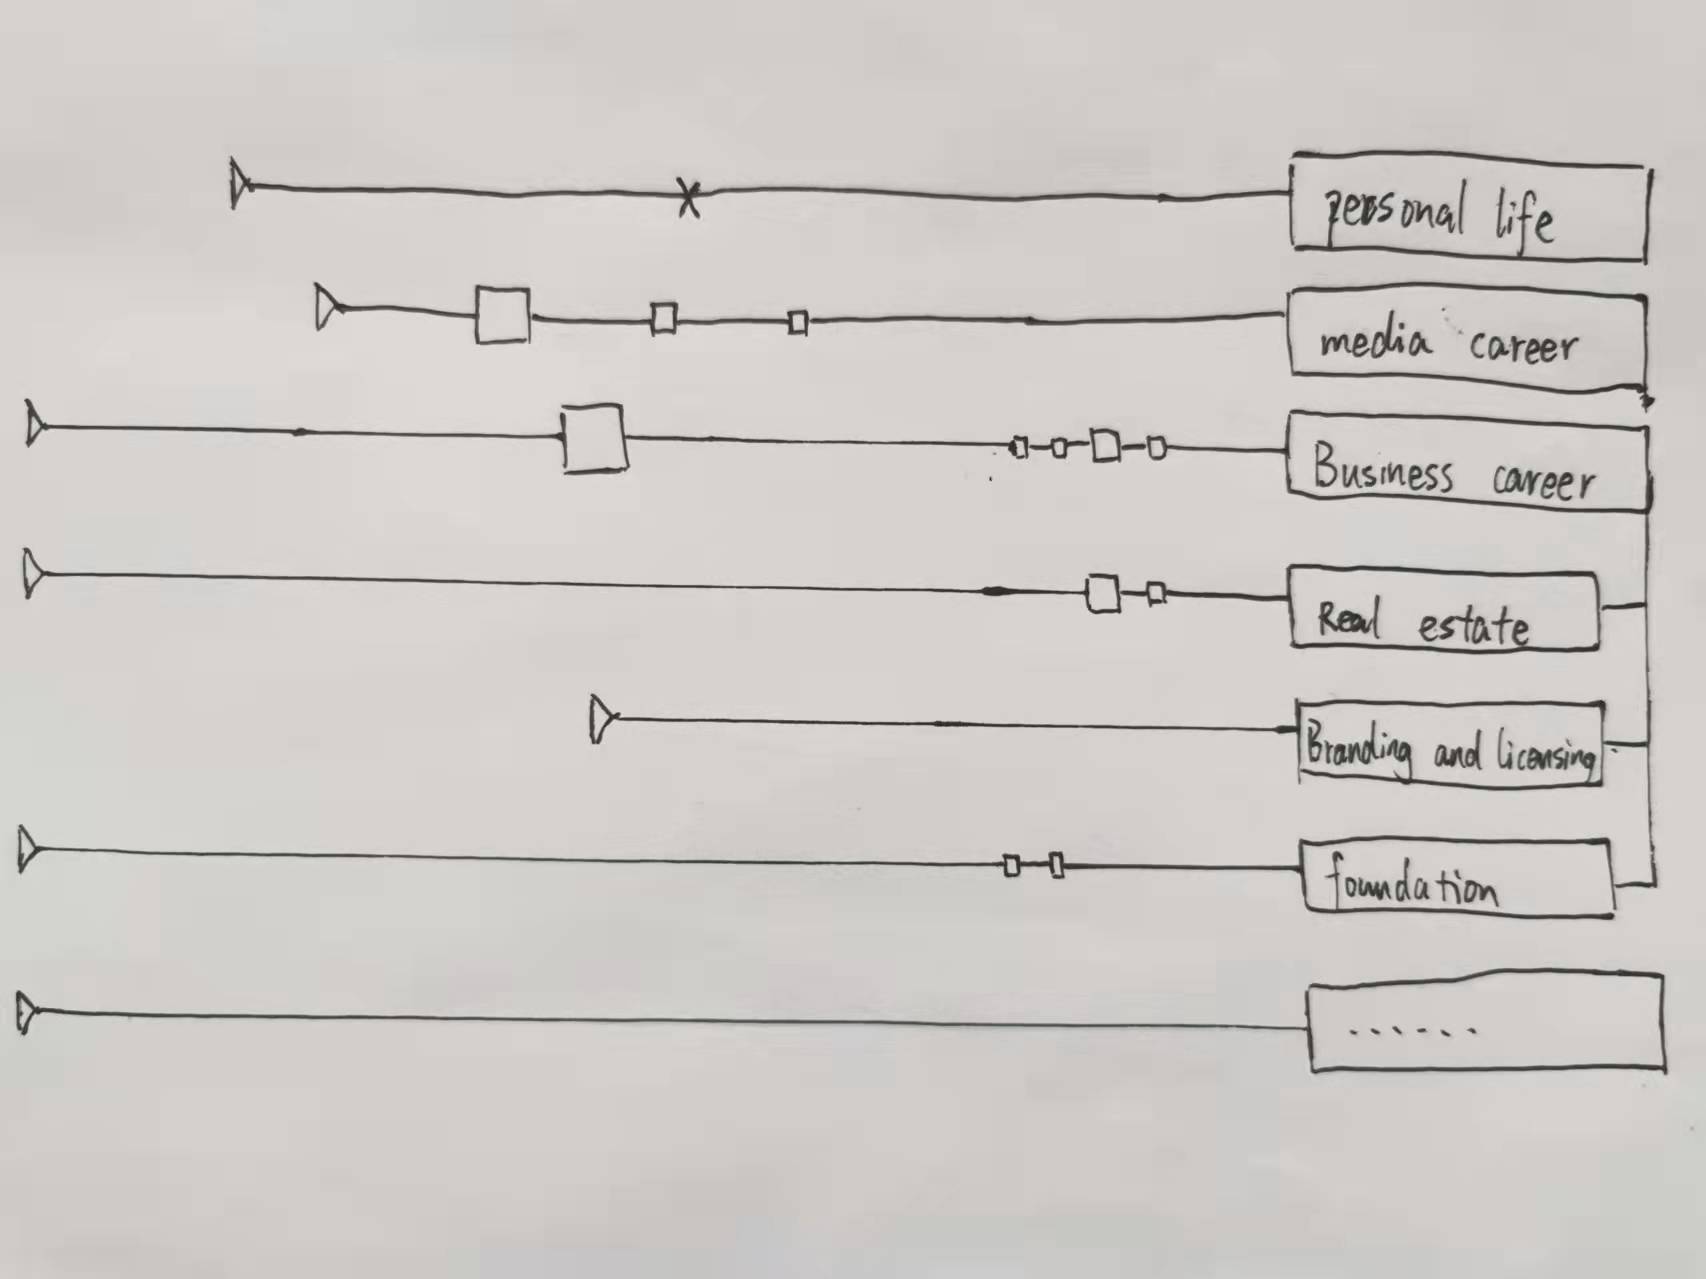 personal life
media career
Business career
Real estate
Branding and licensing
foundation
......